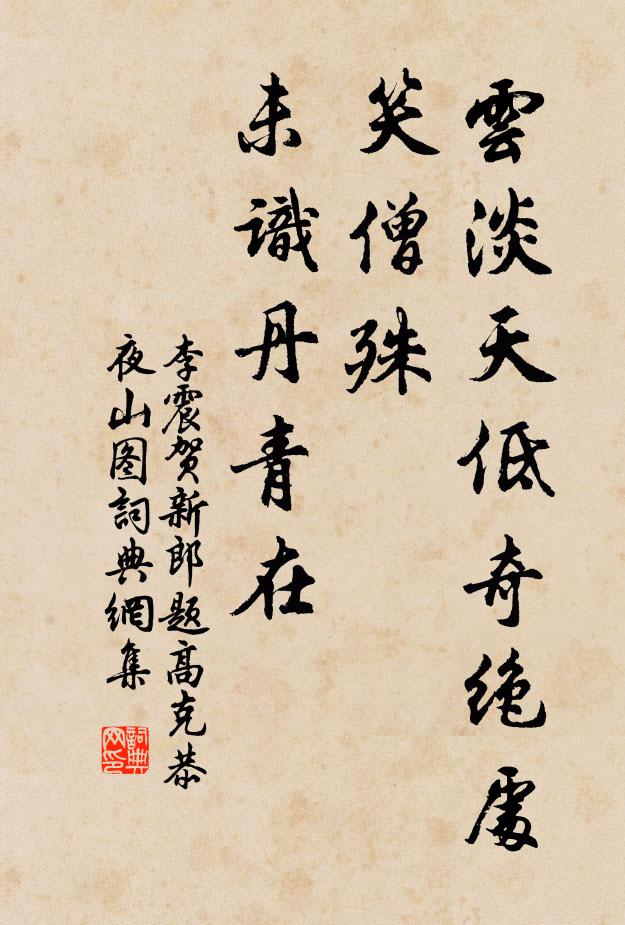 雲淡天低奇絶處
笑僧殊
未識丹青在
李震賀新郎题高克恭
夜山图詞典網集
詞典网印